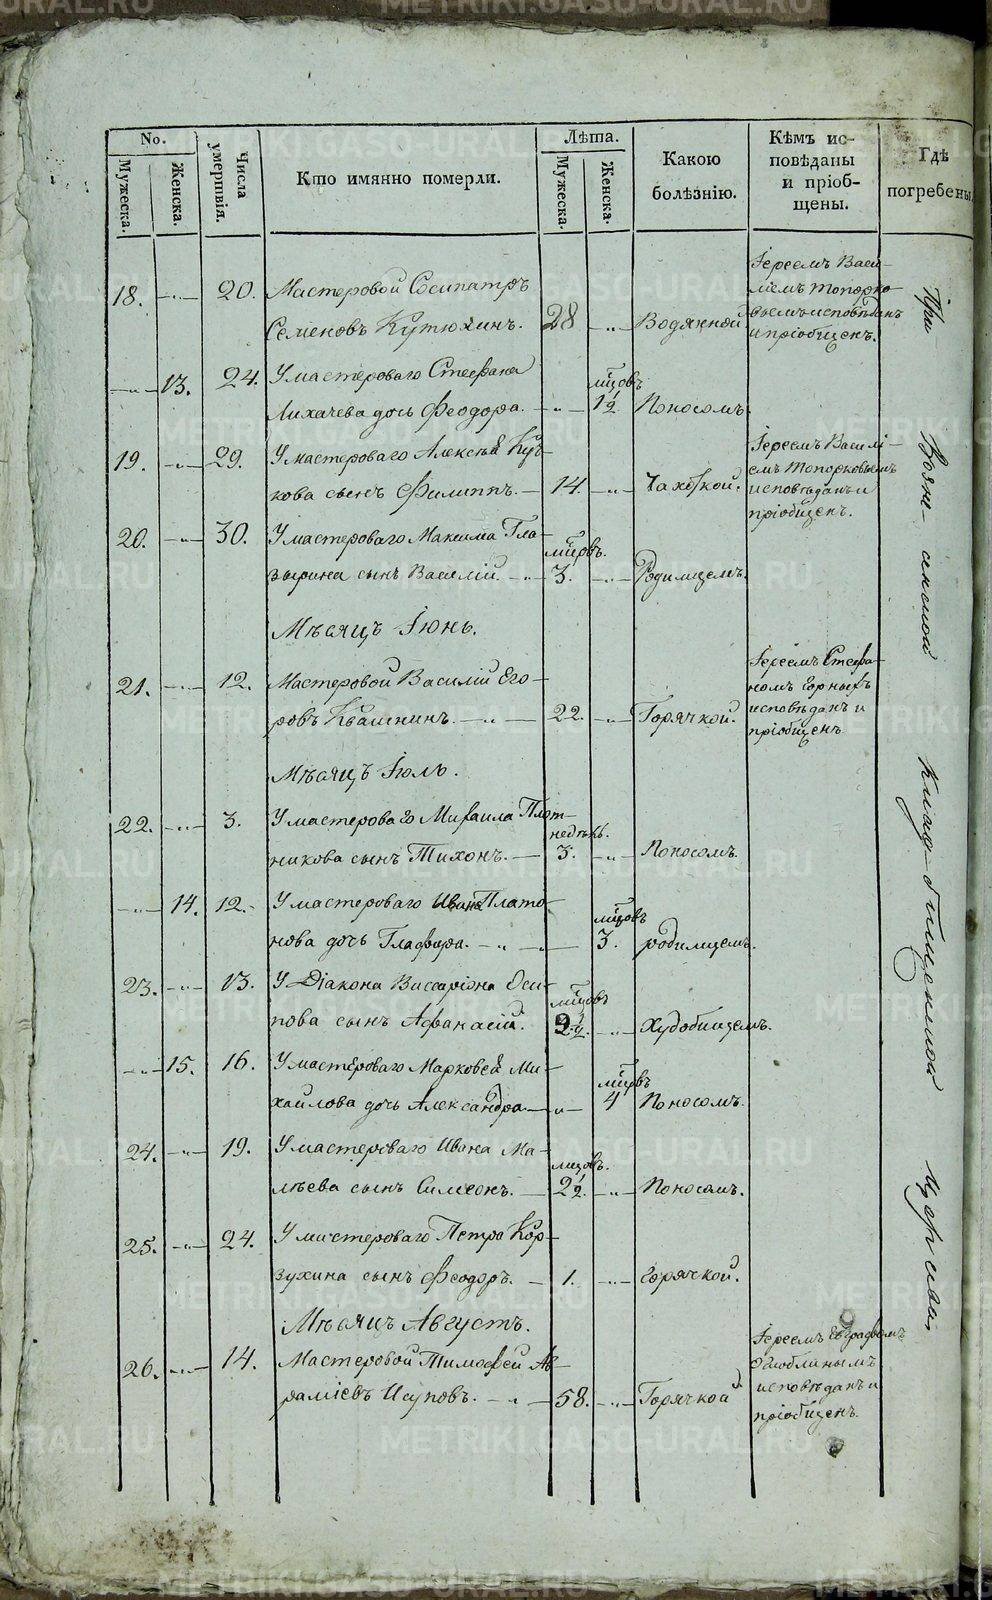 No.
Мужеска.
Женска.
Числа умертвія.
Кто имянно померли.
Лѣта.
Мужеска.
Женска.
Какою болѣзнію.
Кѣмъ ис-
повѣданы
и пріоб-
щены.
Гдѣ
погребены.
18. -„- 20. Мастеровой Сосипатръ
Семеновъ Кутюхинъ. 28 -„- Водяной
Іереемъ Васи-
ліемъ Топорко-
вымъ исповѣданъ
и пріобщенъ.
-„- 13. 24. У мастероваго Стефана
Лихачева дочь Феодора. -„- мцовъ 1½ Поносомъ
19. -„- 29. У мастероваго Алексѣя Куч-
кова сынъ Филиппъ. 14. -„- Чахоткой.
Іереемъ Василі-
емъ Топорковымъ
исповѣданъ и
пріобщенъ.
20. -„- 30. У мастероваго Максима Гла-
зырина сынъ Василій. -„- мцовъ. 3. -„- Родимцемъ.
Мѣсяцъ Іюнь.
21. -„- 12. Мастеровой Василій Его-
ровъ Квашнинъ. -„- 22. -„- Горячкой.
Іереемъ Стефа-
номъ Горныхъ
исповѣданъ и
пріобщенъ
Мѣсяцъ Іюль.
22. -„- 3. У мастероваго Михаила Плот-
никова сынъ Тихонъ. недѣль. 3. -„- Поносомъ.
-„- 14. 12. У мастероваго Ивана Плато-
нова дочь Глафира. -„- -„- мцовъ 3. родимцемъ.
23. -„- 13. У Діакона Виссаріона Оси-
пова сынъ Афанасій. мцовъ 2½. -„- Худобищемъ.
-„- 15. 16. У мастероваго Марковея Ми-
хайлова дочь Александра -„- мцовъ 4 Поносомъ.
24. -„- 19. У мастероваго Ивана Ма-
лѣева сынъ Симеонъ. мцовъ. 2½. -„- Поносомъ.
25. -„- 24. У мастероваго Петра Кор-
зухина сынъ Феодоръ. 1. -„- горячкой.
Мѣсяцъ Августъ.
26. -„- 14. Мастеровой Тимофей Ав-
рамиевъ Исуповъ. -„- 58. -„- Горячкой
Іереемъ Евграфомъ
исповѣданъ и
пріобщенъ.
При кладбищенской Церкви.
METRIKI.GASO-URAL.RU